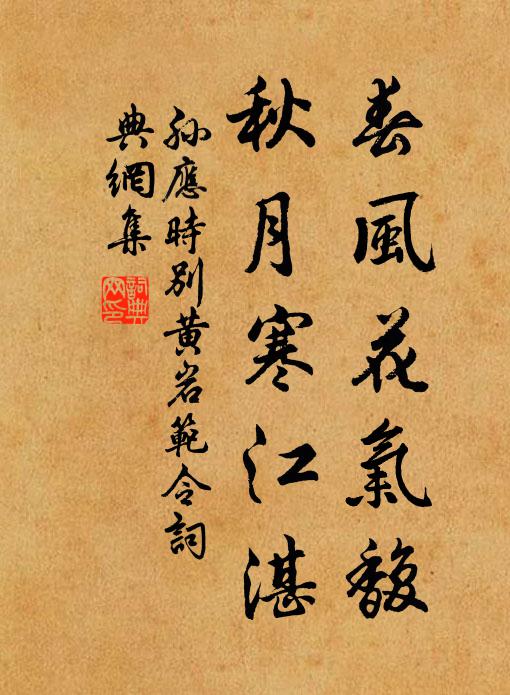 春風花氣馥
秋月寒江湛
孙應時别黄岩範令詞
典網集
詞典
网印